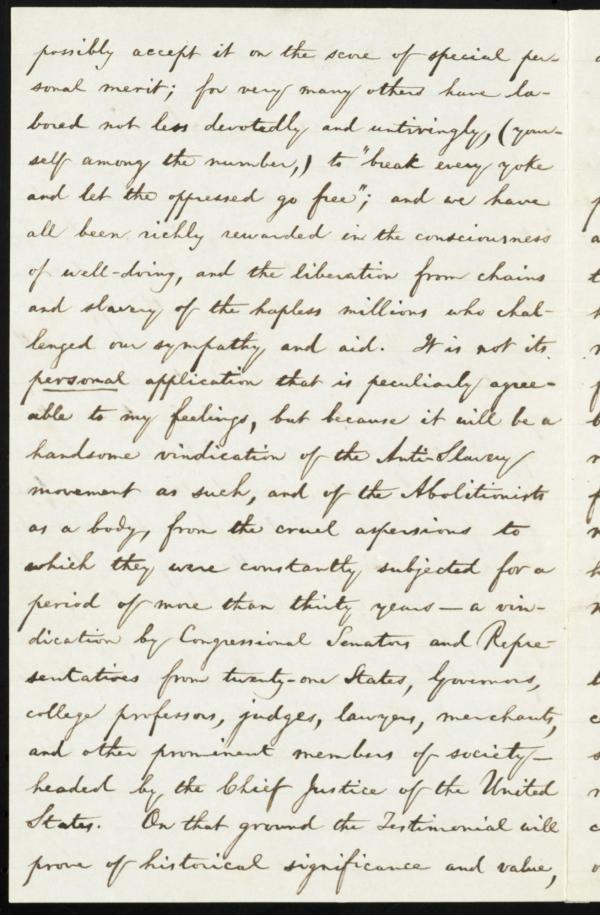 possibly accept it on the score of special per-
sonal merit; for very many others have la-
bored not less devotedly and untiringly, (your-
self among the number,) to "break every yoke
and let the oppressed go free"; and we have
all been richly rewarded in the consciousness
of well-doing, and the liberation from chains
and slavery of the hapless millions who chal-
lenged our sympathy and aid. It is not its
personal application that is peculiarly agree-
able to my feelings, but because it will be a
handsome vindication of the Anti-Slavery
movement as such, and of the Abolitionists
as a body, from the cruel aspersions to
which they were constantly subjected for a
period of more than thirty years — a vin-
dication by Congressional Senators and Repre-
sentatives from twenty-one States, Governors,
college professors, judges, lawyers, merchants,
and other prominent members of society —
headed by the Chief Justice of the United
States. On that ground the Testimonial will
prove of historical significance and value,